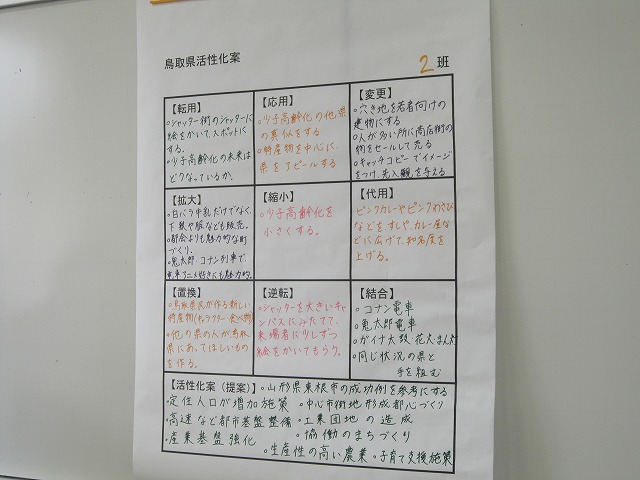 鳥取県活性化案
2班
【転用】
○シャッター街のシャッターに
絵をかいてスポットに
する。
○少子高齢化の未来は
どうなっているか。
【応用】
○少子高齢化の他県
の真似をする
○特産物を中心に
県をアピールする
【変更】
○穴き地を若者向けの
建物にする
○人が多い所に商店街の
物をセールして売る
○キャッチコピーでイメージ
をつけ、先入観を与える
【拡大】
○白バラ牛乳だけでなく、
下着や服なども販売。
○都会よりも魅力的な町
づくり。
○鬼太郎・コナン列車で、
電車アニメ好きにも魅力的。
【縮小】
○少子高齢化を
小さくする。
【代用】
ピンクカレーやピンクわさび
などを、すしや、カレー屋な
どに広げて、知名度を
上げる。
【置換】
○鳥取県民が作る新しい
特産物(キャラクター・食べ物)
○他の県の人が鳥取
県にあってほしいもの
を作る。
【逆転】
○シャッターを大きいキャ
ンバスにみたてて、
来場者に少しずつ
絵をかいてもらう。
【結合】
○コナン電車
○鬼太郎電車
○ガイナ太鼓 花火まんた
○同じ状況の県と
手を組む
【活性化案(提案)】○山形県東根市の成功例を参考にする
○定住人口が増加施策 ○中心市街地形成都心づくり
○高速など都市基盤整備 ○工業団地の造成
○産業基盤強化 ○協働のまちづくり
○生産性の高い農業 ○子育て支援施策